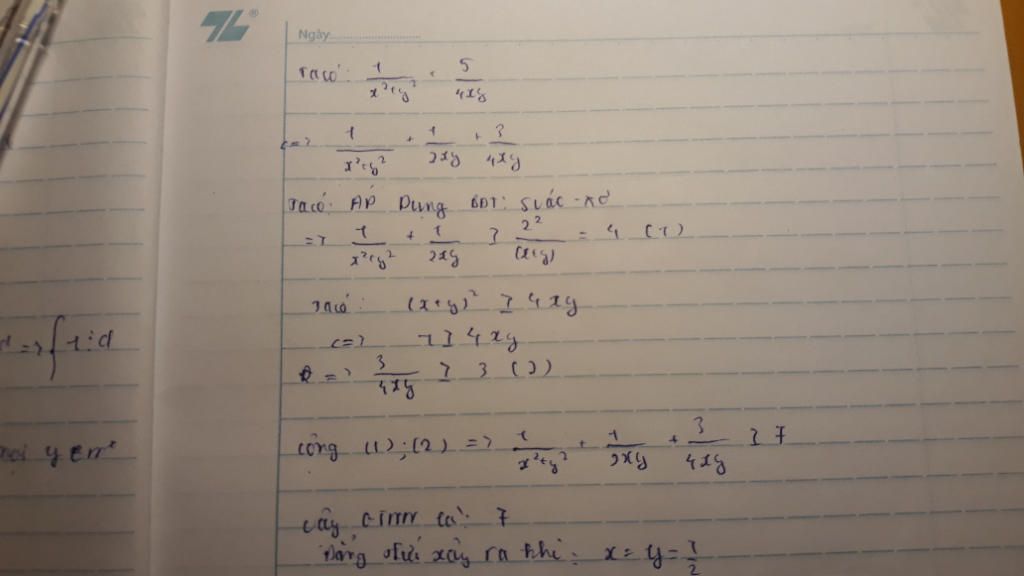 Ngày
Ta có: 1/(x²+y²) + 5/(4xy)
<=> 1/(x²+y²) + 1/(2xy) + 3/(4xy)
Ta có: ÁP Dụng BĐT: Svác-xơ
=> 1/(x²+y²) + 1/(2xy) ≥ 2²/(x+y) = 4 (1)
Ta có: (x+y)² ≥ 4xy
<=> 1 ≥ 4xy
=> 3/(4xy) ≥ 3 (2)
Cộng (1);(2) => 1/(x²+y²) + 1/(2xy) + 3/(4xy) ≥ 7
Vậy là: 7
xảy ra khi: x = y = 1/2
=> { 1⋮d
y ∈